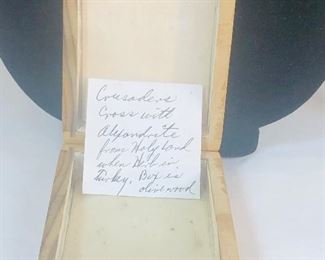 Crusaders
Cross with
Alexandrite
from Holy Land
when in
Turkey. Box is
olivewood